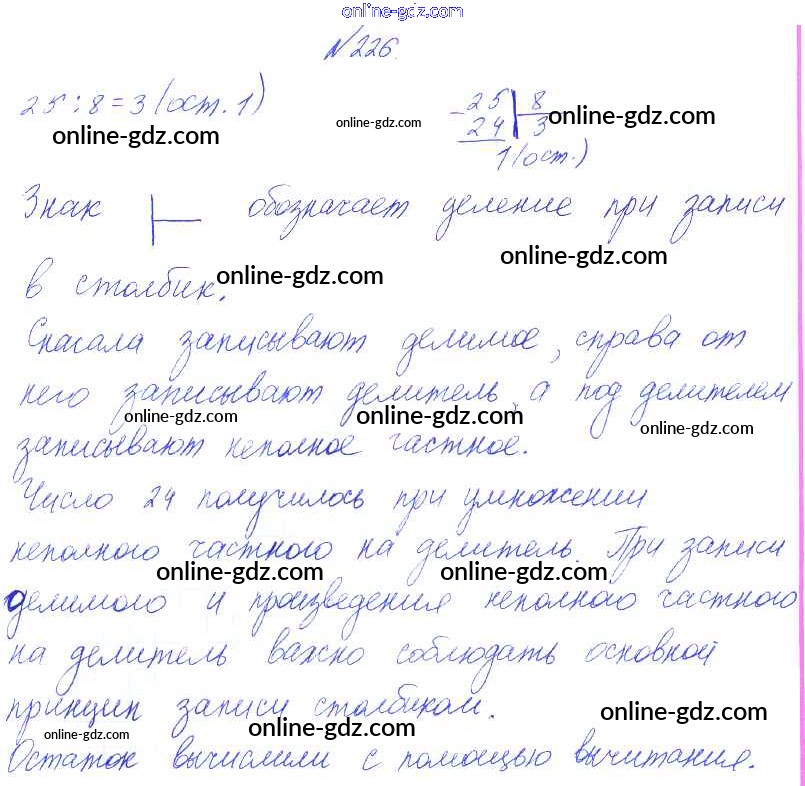 online-gdz.com
№226.
25:8=3(ост. 1)
online-gdz.com
online-gdz.com
-25|8
24 3
1(ост.)
online-gdz.com
Знак ├ обозначает деление при записи
online-gdz.com
online-gdz.com
в столбик.
Сначала записывают делимое, справа от
него записывают делитель, а под делителем
online-gdz.com
online-gdz.com
online-gdz.com
записывают неполное частное.
Число 24 получилось при умножении
неполного частного на делитель. При записи
online-gdz.com
online-gdz.com
делимого и произведения неполного частного
на делитель важно соблюдать основной
принцип записи столбиком.
online-gdz.com
online-gdz.com
online-gdz.com
Остаток вычислили с помощью вычитания.